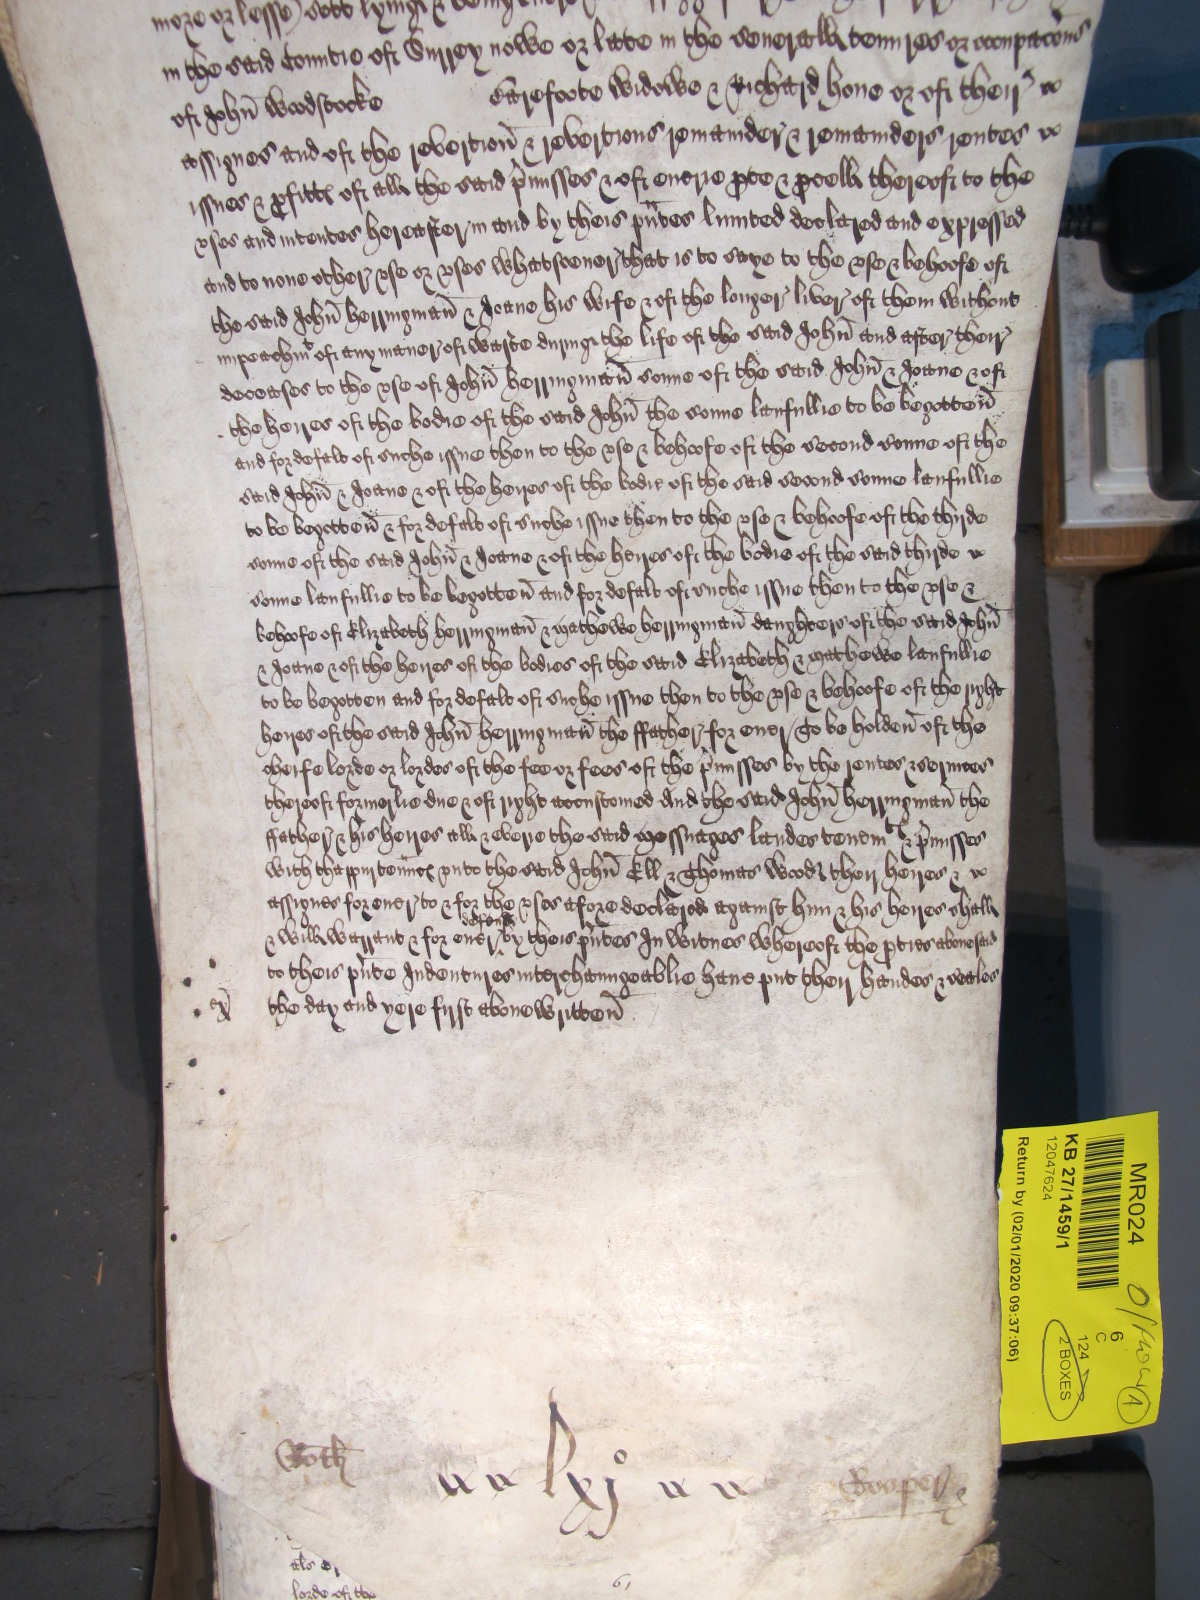 more or lesse) sett lying & being
in the said Countie of Surrey nowe or late in the severall tenures or occupacōns
of John̄ Woodstocke Barefoote Widowe & Richard hone or of their
assignes and of the revertion̄ & revertions remainder & remainders rentes
issues & p̱fittꝭ of all the said p̄misses & of everie p̱te & p̱cell thereof to the
vses and intentes hereafter in and by theis p̄ntes limited declared and expressed
and to none other vse or vses whatsoever that is to saye to the vse & behoofe of
the said John̄ herringman̄ & Joane his wife & of the longer liver of them without
impeachmt of any maner of waste during the life of the said John̄ and after their
deceases to the vse of John̄ herringman̄ sonne of the said John̄ & Joane & of
the heires of the bodie of the said John̄ the sonne laufullie to be begotten̄
and for defalt of suche issue then to the vse & behoofe of the second sonne of the
said John̄ & Joane & of the heires of the bodie of the said second sonne laufullie
to be begotten̄ & for defalt of suche issue then to the vse & behoofe of the thirde
sonne of the said John̄ & Joane & of the heires of the bodie of the said thirde
sonne laufullie to be begotten̄ and for defalt of suche issue then to the vse &
behoofe of Elizabeth herringman̄ & Mathewe herringman̄ daughters of the said John̄
& Joane & of the heires of the bodies of the said Elizabeth & Mathewe laufullie
to be begotten and for defalt of suche issue then to the vse & behoofe of the right
heires of the said John̄ herringman̄ the ffather for ever To be holden̄ of the
cheife lorde or lordes of the fee or fees of the p̄misses by the rentes & services
thereof formerlie due & of right accustomed And the said John̄ herringman̄ the
ffather & his heires all & everie the said Messuages landes tenemtꝭ & p̄misses
with thappurtenncꝭ vnto the said John̄ Ell & Thomas Wood their heires &
assignes for ever to & for the vses afore declared against him & his heires shall
defend
& will warrant & for ever by theis p̄ntes In witnes whereof the p̱ties abovesaid
to theis p̄nte Indentures interchaungeablie have put their handes & seales
ex̄ the day and yere first abovewritten̄
Roth lxj Cooper
61
als
lorde of the
MR024
KB 27/1459/1
12047624
Return by (02/01/2020 09:37:06)
6
C
124
2 BOXES
4